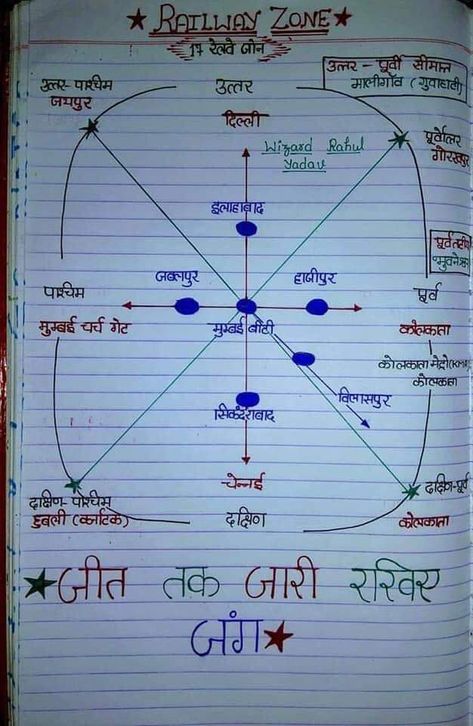 RAILWAY ZONE
17 रेलवे जोन
उत्तर - पूर्वी सीमान्त
मालीगाँव (गुवाहाटी)
उत्तर- पश्चिम
जयपुर
उत्तर
दिल्ली
Wizard Rahul
Yadav
पूर्वोत्तर
गोरखपुर
इलाहाबाद
जबलपुर
हाजीपुर
पश्चिम
मुम्बई चर्च गेट
मुम्बई वीटी
पूर्व
कोलकाता
कोलकाता मेट्रो
कोलकाता
सिकंदराबाद
विलासपुर
चेन्नई
दक्षिण- पश्चिम
हुबली (कर्नाटक)
दक्षिण
दक्षिण-पूर्व
कोलकाता
जीत तक जारी रखिए
जंग